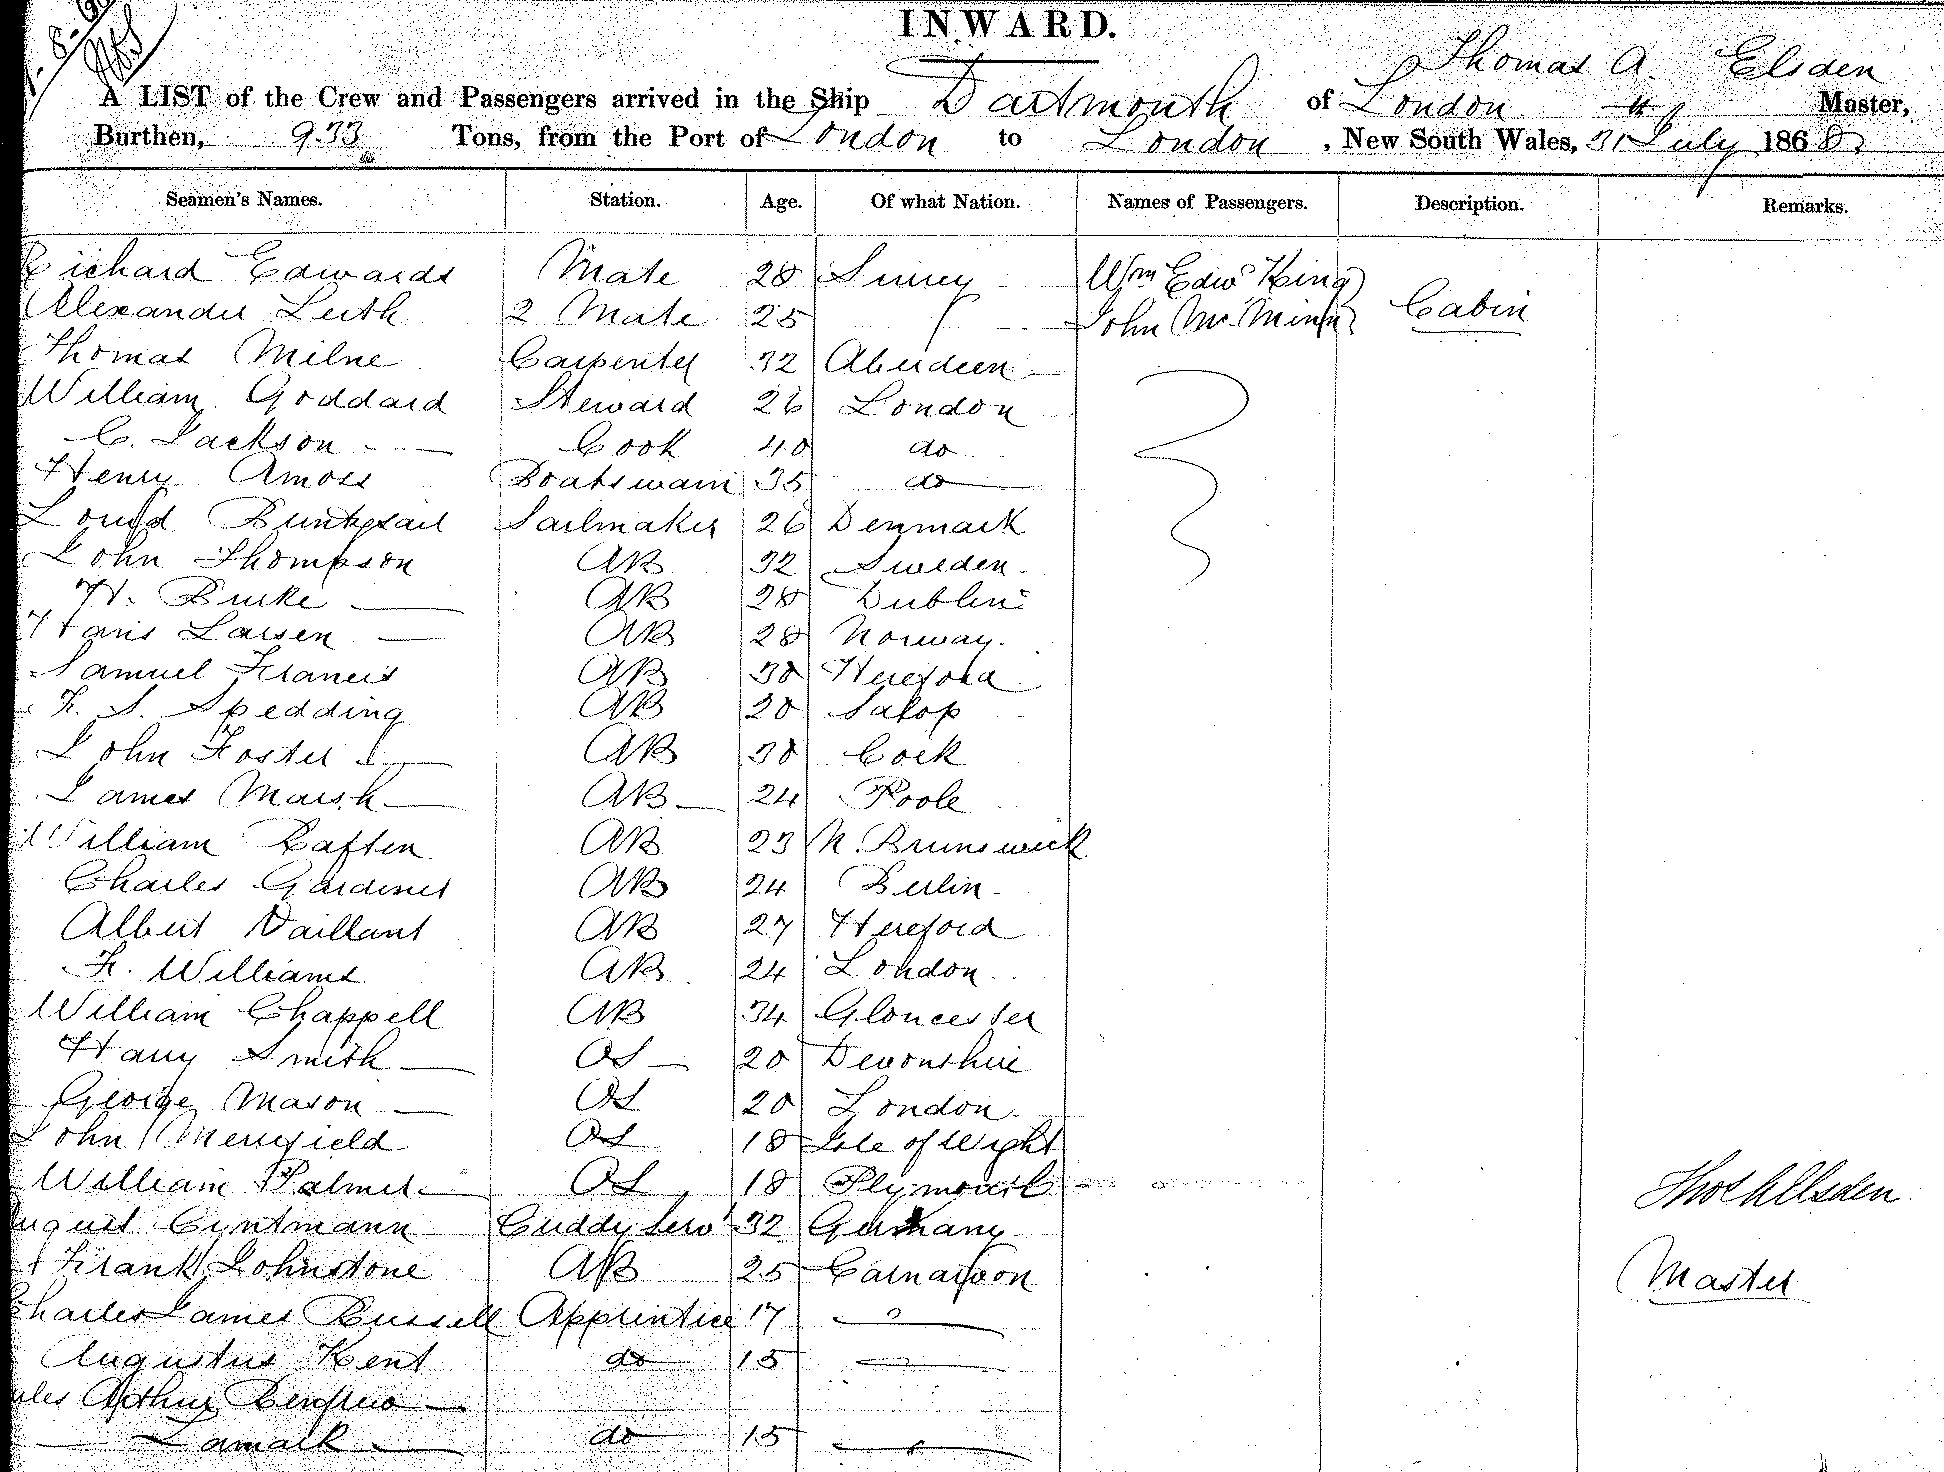 INWARD.
Thomas A. Elsden
A LIST of the Crew and Passengers arrived in the Ship Dartmouth of London Master,
Burthen, 933 Tons, from the Port of London to London, New South Wales, 31 July 1868
Seamen's Names. Station. Age. Of what Nation. Names of Passengers. Description. Remarks.
Richard Edwards Mate 28 Surrey Wm Edwd King
Alexander Leith 2 Mate 25 John McMinn Cabin
Thomas Milne Carpenter 32 Aberdeen
William Goddard Steward 26 London
C. Jackson Cook 40 do
Henry Amoss Boatswain 35 do
Sailmaker 26 Denmark
John Thompson AB 32 Sweden
H. Burke AB 28 Dublin
Hans Larsen AB 28 Norway.
Samuel Francis AB 38 Hereford
F. S. Spedding AB 20 Salop
John Foster AB 38 Cork
James Marsh AB 24 Poole
William Raften AB 23 N. Brunswick
Charles Gardiner AB 24 Berlin
Albert Vaillant AB 27 Hereford
F. Williams AB 24 London
William Chappell AB 34 Gloucester
Harry Smith OS 20 Devonshire
George Mason OS 20 London
John Merryfield OS 18 Isle of Wight
William Palmer OS 18 Plymouth Thos A Elsden
August Cuddy Serv't 32 Germany
Frank Johnstone AB 25 Carnarvon Master
Charles James Russell Apprentice 17
Augustus Kent do 15
Arthur Renfrew
Lamark do 15